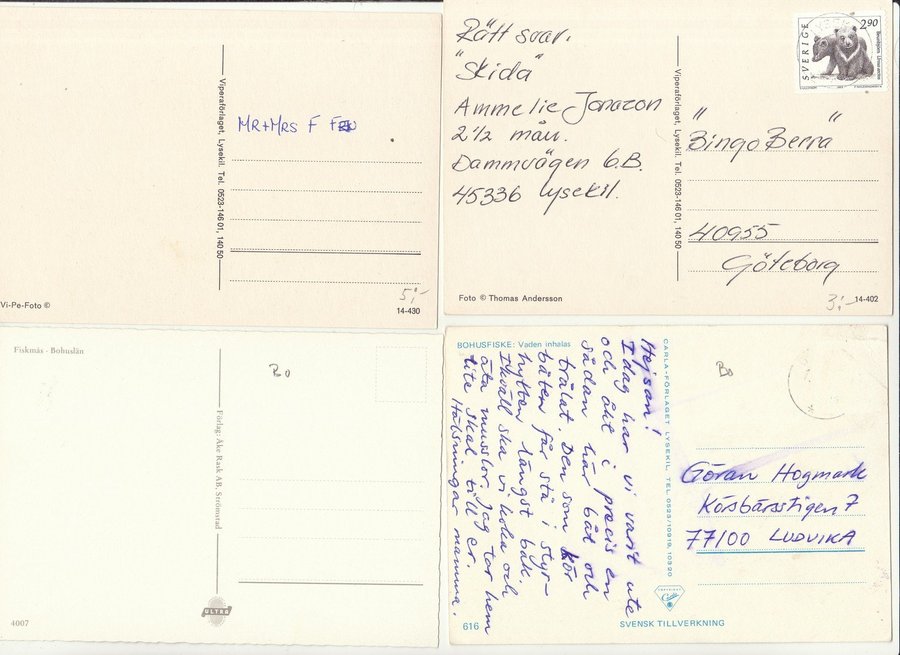 Viperaförlaget, Lysekil. Tel. 0523-146 01, 140 50
MR+MRS F
Vi-Pe-Foto ©
5:-
14-430
Rätt svar.
"Skida"
Ammelie Jonazon
2 1/2 mån.
Dammvägen 6.B.
45336 Lysekil.
Foto © Thomas Andersson
Viperaförlaget, Lysekil. Tel. 0523-146 01, 140 50
SVERIGE
2.90
"Bingo Berra"
40955
Göteborg
3:-
14-402
Fiskmås - Bohuslän
Bo
Förlag: Åke Rask AB, Strömstad
ULTRA
4007
BOHUSFISKE: Vaden inhalas
Hejsan!
Idag har vi varit ute
och åkt i precis en
sådan här båt och
trålat. Den som kör
båten får stå i styr-
hytten längst bak.
Ikväll ska vi koka och
äta musslor. Jag tar hem
lite skal till er.
Hälsningar mamma.
616
CARLA-FÖRLAGET LYSEKIL TEL. 0523/10919, 10320
SVENSK TILLVERKNING
Bo
Göran Hogmark
Körsbärsstigen 7
77100 LUDVIKA